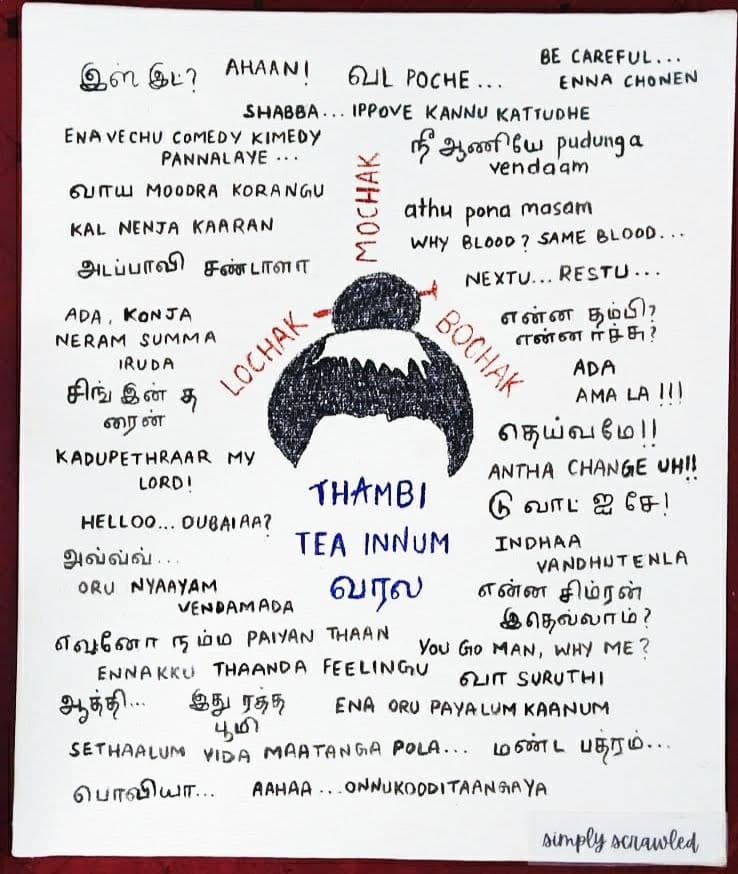 இஸ் இட்?
AHAAN!
வட POCHE...
BE CAREFUL...
ENNA CHONEN
SHABBA... IPPOVE KANNU KATTUDHE
ENA VECHU COMEDY KIMEDY
PANNALAYE...
நீ ஆணியே pudunga
vendaam
வாய MOODRA KORANGU
MOCHAK
athu pona masam
KAL NENJA KAARAN
WHY BLOOD? SAME BLOOD...
அடப்பாவி சண்டாளா
NEXTU... RESTU...
ADA, KONJA
NERAM SUMMA
IRUDA
LOCHAK
BOCHAK
என்ன தம்பி?
என்ன
ADA
AMA LA !!!
சிங் இன் த
ரைன்
தெய்வமே!!
KADUPETHRAAR MY
LORD!
THAMBI
TEA INNUM
வரல
ANTHA CHANGE UH!!
டு வாட் ஐ சே!
HELLOO... DUBAIAA?
INDHAA
VANDHUTENLA
அவ்வ்வ்...
ORU NYAAYAM
VENDAMADA
என்ன சிம்ரன்
இதெல்லாம்?
எவனோ நம்ம PAIYAN THAAN
YOU GO MAN, WHY ME?
ENNAKKU THAANDA FEELINGU
வா SURUTHI
ஆத்தி...
இது ரத்த
பூமி
ENA ORU PAYALUM KAANUM
SETHAALUM VIDA MAATANGA POLA...
மண்ட பத்ரம்...
பொவியா...
AAHAA...ONNUKOODITAANGAYA
simply scrawled